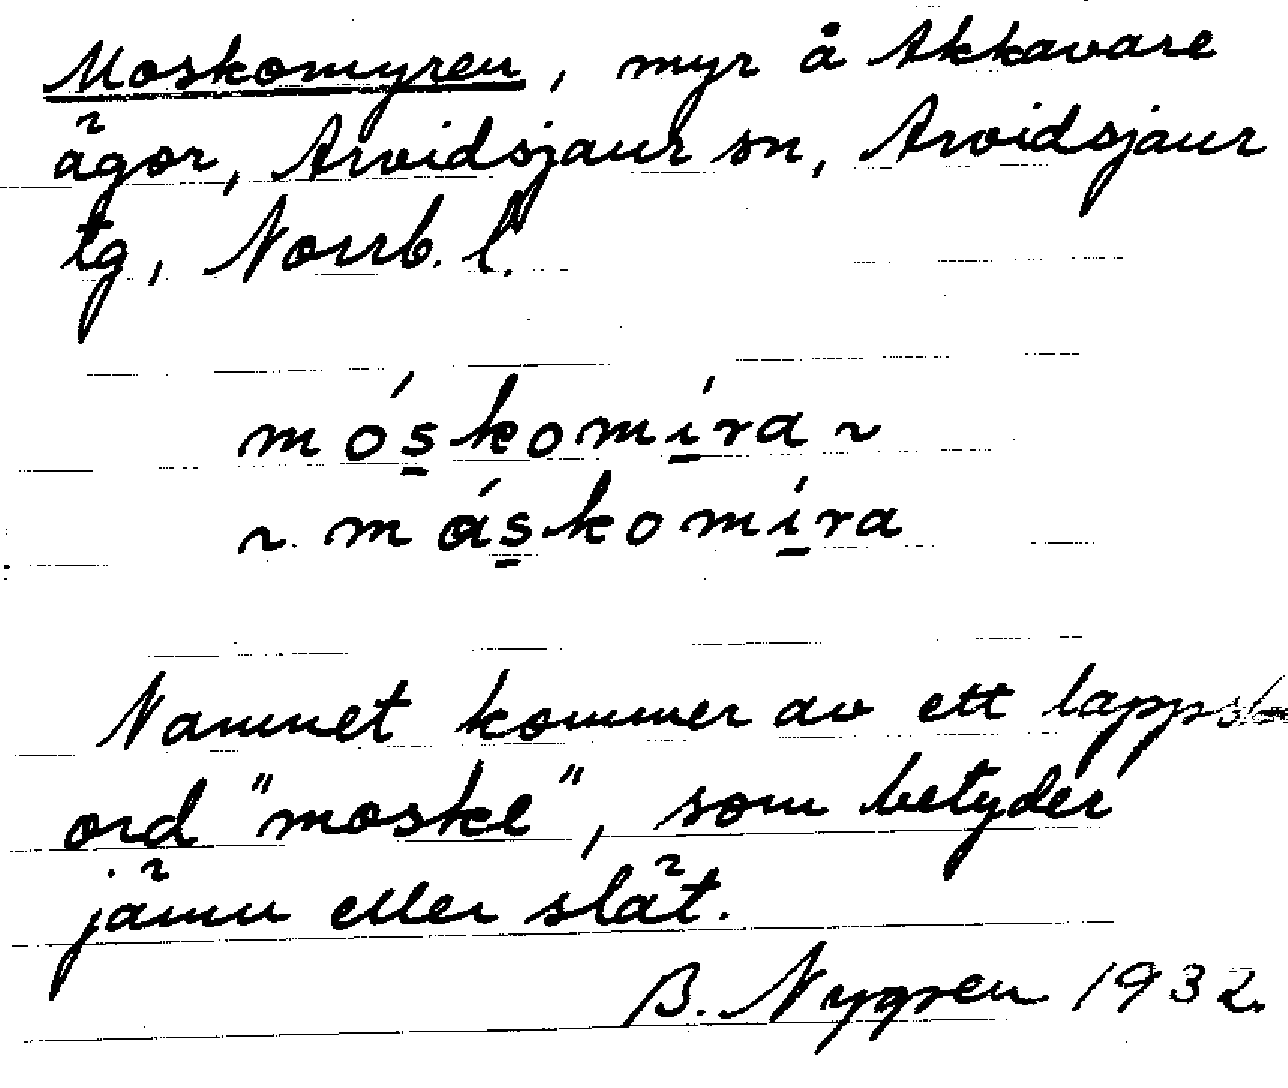 Moskomyren, myr å Akkavare
ägor, Arvidsjaur sn, Arvidsjaur
tg, Norrb. l.
móskomíra ~
~ máskomíra
Namnet kommer av ett lappskt
ord "moske", som betyder
jämn eller slät.
B. Nygren 1932.